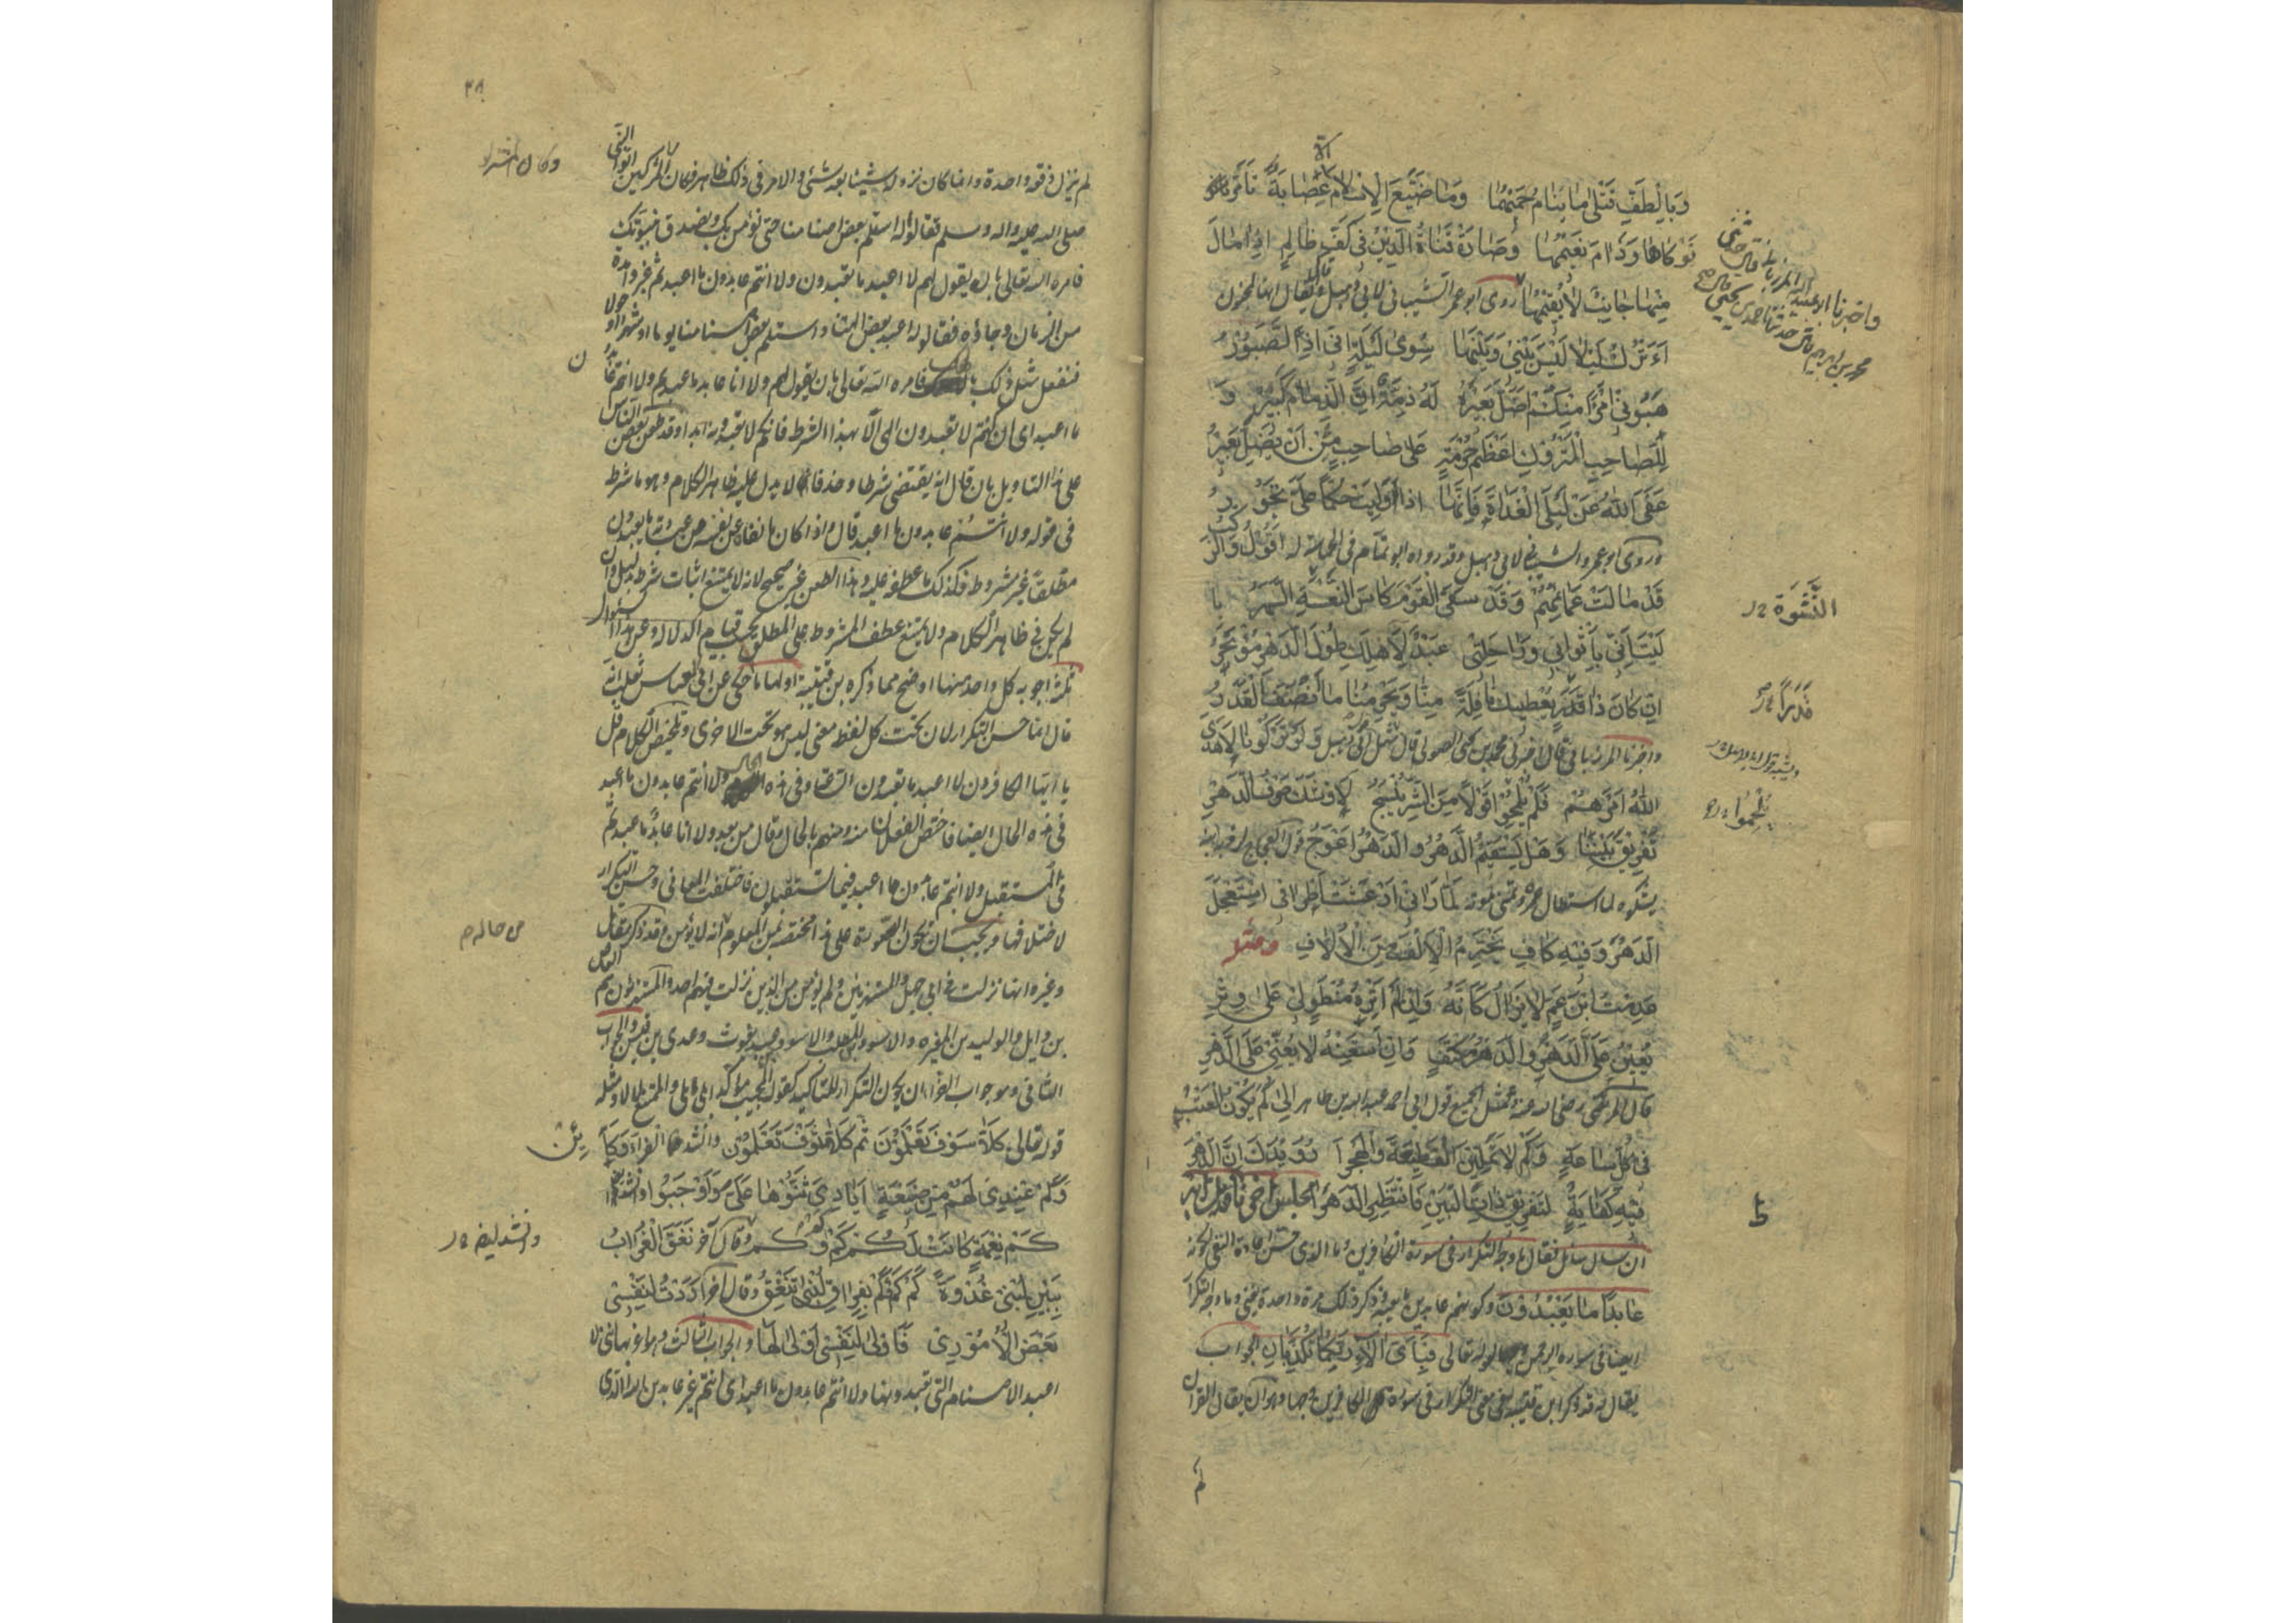 وَبِالْطَفِّ قَتْلىٰ مٰا يَنٰامُ حَمِيْمُهٰا وَمٰا ضَيَّعَ الْاِسْلٰامَ اِلّٰا عِصٰابَةٌ تَأَمَّرَ
نَوْكٰاهٰا وَدٰامَ نَعِيْمُهٰا وَصٰارَتْ قَنٰاةُ الدِّيْنِ فِىْ كَفِّ ظٰالِمٍ اِذٰا مٰالَ
مِنْهٰا جٰانِبٌ لٰا يُقِيْمُهٰا روى ابو عمرو الشيبانى لابى دهبل ويقال انها للمجنون
أَأَتْرُكُ لَيْلٰى لَيْسَ بَيْنِىْ وَبَيْنَهٰا سِوىٰ لَيْلَةٍ اِنِّىْ اِذًا لَصَبُوْرُ
هَبُوْنِىْ امْرَأً مِنْكُمْ اَضَلَّ بَعِيْرَهُ لَهُ ذِمَّةٌ اِنَّ الذِّمٰامَ كَبِيْرُ وَ
لَلصّٰاحِبُ الْمَتْرُوْكُ اَعْظَمُ حُرْمَةٍ عَلىٰ صٰاحِبٍ مِنْ اَنْ يَضِلَّ بَعِيْرُ
عَفَى اللّٰهُ عَنْ لَيْلَى الْغَدٰاةَ فَاِنَّهٰا اِذٰا وَلِيَتْ حُكْمًا عَلَىَّ تَجُوْرُ
وروى ابو عمرو الشيبانى لابى دهبل وقد رواه ابو تمام فى الحماسة له اَقُوْلُ وَالرَّكْبُ
قَدْ مٰالَتْ عَمٰائِمُهُمْ وَقَدْ سَقَى الْقَوْمَ كَاسَ النَّعْسَةِ السَّهَرُ يٰا
لَيْتَ اَنِّىْ بِاَثْوٰابِىْ وَرٰاحِلَتِىْ عَبْدٌ لِاَهْلِكِ طُوْلَ الدَّهْرِ مُؤْتَجَرُ
اِنْ كٰانَ ذٰا قَدَرٍ يُعْطِيْكِ نٰافِلَةً مِنّٰا وَيَحْرِمُنٰا مٰا اَنْصَفَ الْقَدَرُ
واخبرنا المرزبانى قال اخبرنى محمد بن يحيى الصولى قال مثل ابى دهبل وَلَوْ تَرَكُوْنٰا لٰا هَدَى
اللّٰهُ اَمْرَهُمْ فَلَمْ يُلْحِمُوْا قَوْلًا مِنَ الشَّرِّ يُنْسَجُ لَاَوْشَكَ صَرْفُ الدَّهْرِ
تَفْرِيْقَ بَيْنِنٰا وَهَلْ يَسْتَقِيْمُ الدَّهْرُ وَالدَّهْرُ اَعْوَجُ قول العجاج
يشكوه لما استطال عمره وتمنى موته لَمّٰا رَاٰنِىْ اُرْعِشَتْ اَطْرٰافِىْ اسْتَعْجَلَ
الدَّهْرَ وَفِيْهِ كٰافِ يَخْتَرِمُ الْاِلْفَ مِنَ الْاُلّٰافِ ومثله
عَدِمْتُ ابْنَ عَمٍّ لٰا يَزٰالُ كَاَنَّهُ وَاِنْ لَمْ اَتِرْهُ مُنْطَوٍ لِىْ عَلىٰ وِتْرِ
يُعِيْنُ عَلَىَّ الدَّهْرَ وَالدَّهْرُ مُكْتَفٍ وَاِنْ اَسْتَعِنْهُ لٰا يُعِنِّىْ عَلَى الدَّهْرِ
قال المرتضى رضى الله عنه ومثل الجميع قول ابى احمد عبيد الله بن طاهر اِلىٰ كَمْ يَكُوْنُ الْعَتْبُ
فِىْ كُلِّ سٰاعَةٍ وَكَمْ لٰا تَمَلِّيْنَ الْقَطِيْعَةَ وَالْهَجْرَا رُوَيْدَكِ اِنَّ الدَّهْرَ
فِيْهِ كِفٰايَةٌ لِتَفْرِيْقِ ذٰاتِ الْبَيْنِ فَانْتَظِرِى الدَّهْرَا مجلس آخر تأويل آية
ان سال سائل فقال ما وجه التكرار فى سورة الكافرين وما الذى حسن اعادة النفى لكونه
عٰابِدًا مٰا يَعْبُدُوْنَ وكونهم عابدين ما يعبد وذكر ذلك مرة واحدة يغنى وما وجه التكرار
ايضا فى سورة الرحمن لقوله تعالى فَبِاَىِّ اٰلٰاءِ رَبِّكُمٰا تُكَذِّبٰانِ الجواب
يقال له قد ذكر ابن قتيبة فى معنى التكرار فى سورة الكافرين وجها وهو ان يقال القران
لم
واخبرنا ابو عبيد الله المرزبانى قال حدثنى
محمد بن ابراهيم قال حدثنا احمد بن يحيى قال
النَّشْوَة
قَدَرًا
يُلْحِمُوا
٣٨
لم ينزل دفعة واحدة وانما كان نزوله شيئا بعد شئ والامر فى ذلك ظاهر فكان المشركين اتوا النبى
صلى الله عليه واله وسلم فقالوا له استلم بعض اصنامنا حتى نؤمن بك ونصدق بنبوتك
فامره الله تعالى بان يقول لهم لا اعبد ما تعبدون ولا انتم عابدون ما اعبد ثم غبروا مدة
من الزمان وجاؤه فقالوا له اعبد بعض الهتنا واستلم بعض اصنامنا يوما او شهرا او حولا
فنفعل مثل ذلك بالهك فامره الله تعالى بان يقول لهم ولا انا عابد ما عبدتم ولا انتم عابدون
ما اعبد اى ان كنتم لا تعبدون الهى الا بهذا الشرط فانكم لا تعبدونه ابدا وقد طعن بعض الناس
على هذا التاويل بان قال انه يقتضى شرطا وحذفا لا يدل عليه ظاهر الكلام وهو ما شرط
فى قوله ولا انتم عابدون ما اعبد قال واذا كان ما نفاه عن نفسه من عبادة ما يعبدون
مطلقا غير مشروط فكذلك ما عطفه عليه وهذا الطعن غير صحيح لانه لا يمتنع اثبات شرط بدليل وان
لم يكن فى ظاهر الكلام ولا يمتنع عطف المشروط على المطلق بحسب قيام الدلالة وعن هذا السؤال
ثلثة اجوبه كل واحد منها اوضح مما ذكره بن قتيبة اولها ما حكى عن ابى العباس ثعلب انه
قال انما حسن التكرار لان تحت كل لفظ معنى ليس هو تحت الاخرى وتلخيص الكلام قل
يا ايها الكافرون لا اعبد ما تعبدون الساعة وفى هذه الحال ولا انتم عابدون ما اعبد
فى هذه الحال ايضا فاختص الفعلان منه ومنهم بالحال وقال من بعد ولا انا عابد ما عبدتم
فى المستقبل ولا انتم عابدون ما اعبد فيما تستقبلون فاختلفت المعانى وحسن التكرار
لاختلافها ويجب ان تكون السورة على هذا مختصة بمن المعلوم انه لا يؤمن وقد ذكر مقاتل
وغيره انها نزلت فى ابى جهل والمستهزئين ولم يؤمن من الذين نزلت فيهم احد والمستهزئون هم العاص
بن وايل والوليد بن المغيره والاسود بن المطلب والاسود بن عبد يغوث وعدى بن قيس والجواب
الثانى وهو جواب الفراء ان يكون التكرار للتاكيد كقول المجيب مؤكدا بلى بلى والممتنع لا لا ومثله
قوله تعالى كَلّٰا سَوْفَ تَعْلَمُوْنَ ثُمَّ كَلّٰا سَوْفَ تَعْلَمُوْنَ وانشد الفراء وَكَاَيِّنْ
وَكَمْ عِنْدِىْ لَهُمْ مِنْ صَنِيْعَةٍ اَيٰادِىَ ثَنَّوْهٰا عَلَىَّ وَاَوْجَبُوْا وانشد
كَمْ نِعْمَةٍ كٰانَتْ لَكُمْ كَمْ كَمْ وَكَمْ وقال آخر نَغَقَ الْغُرٰابُ
بِبَيْنِ لُبْنىٰ غُدْوَةً كَمْ كَمْ وَكَمْ بِفِرٰاقِ لُبْنىٰ يَنْغِقُ وقال اخر اَرَدْتُ لِنَفْسِىْ
بَعْضَ الْاُمُوْرِ فَاَوْلىٰ لِنَفْسِىْ اَوْلىٰ لَهٰا والجواب الثالث وهو اغربها اننى لا
اعبد الاصنام التى تعبدونها ولا انتم عابدون ما اعبد اى انتم غير عابدين الله الذى